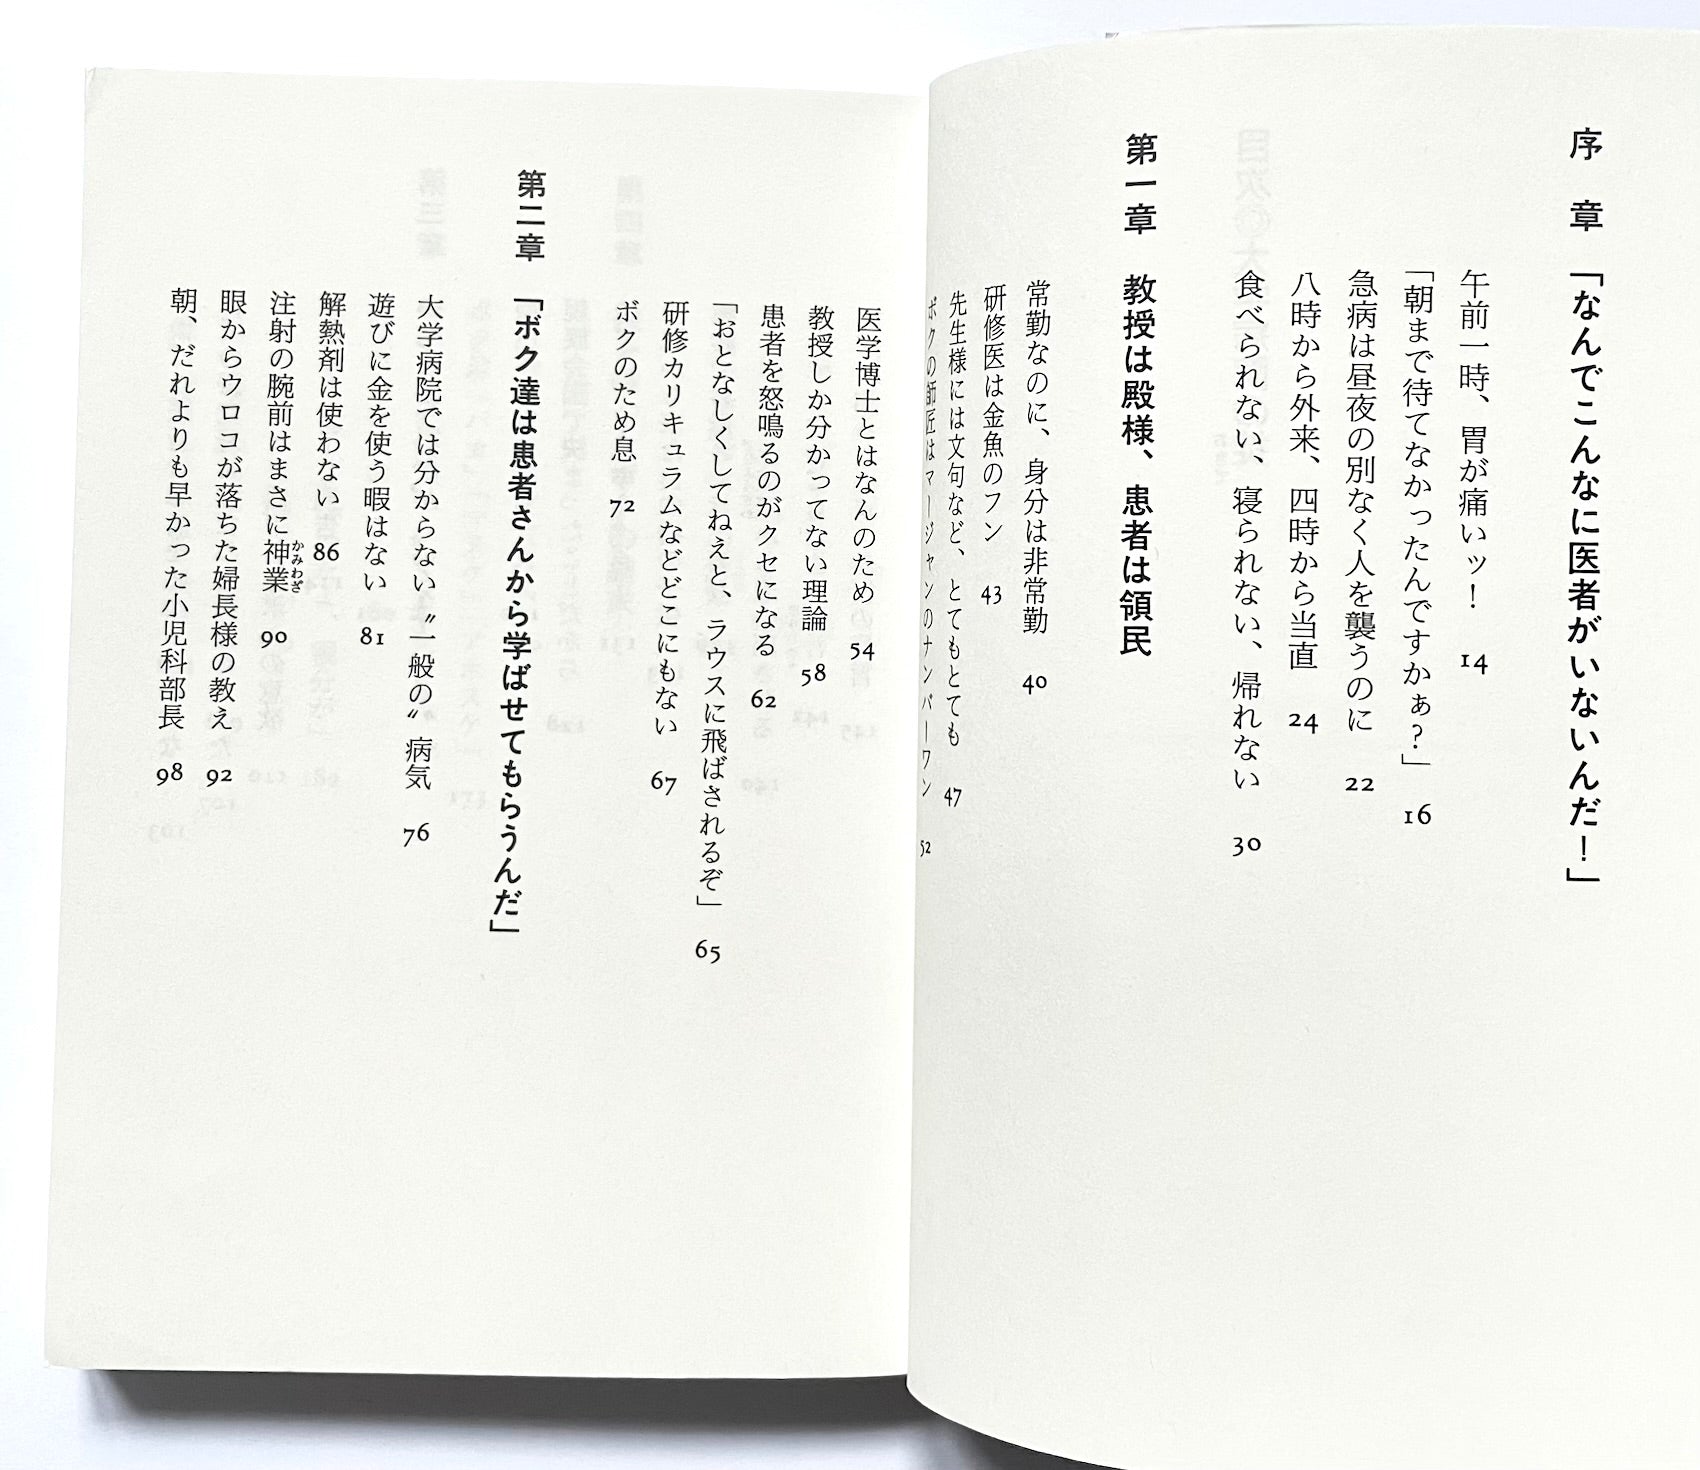 序　章　「なんでこんなに医者がいないんだ！」
午前一時、胃が痛いッ！　14
「朝まで待てなかったんですかぁ？」　16
急病は昼夜の別なく人を襲うのに　22
八時から外来、四時から当直　24
食べられない、寝られない、帰れない　30
第一章　教授は殿様、患者は領民
常勤なのに、身分は非常勤　40
研修医は金魚のフン　43
先生様には文句など、とてもとても　47
ボクの師匠はマージャンのナンバーワン　52
医学博士とはなんのため　54
教授しか分かってない理論　58
患者を怒鳴るのがクセになる　62
「おとなしくしてねえと、ラウスに飛ばされるぞ」　65
研修カリキュラムなどどこにもない　67
ボクのため息　72
第二章　「ボク達は患者さんから学ばせてもらうんだ」
大学病院では分からない〝一般の〟病気　76
遊びに金を使う暇はない　81
解熱剤は使わない　86
注射の腕前はまさに神業　90
かみわざ
眼からウロコが落ちた婦長様の教え　92
朝、だれよりも早かった小児科部長　98